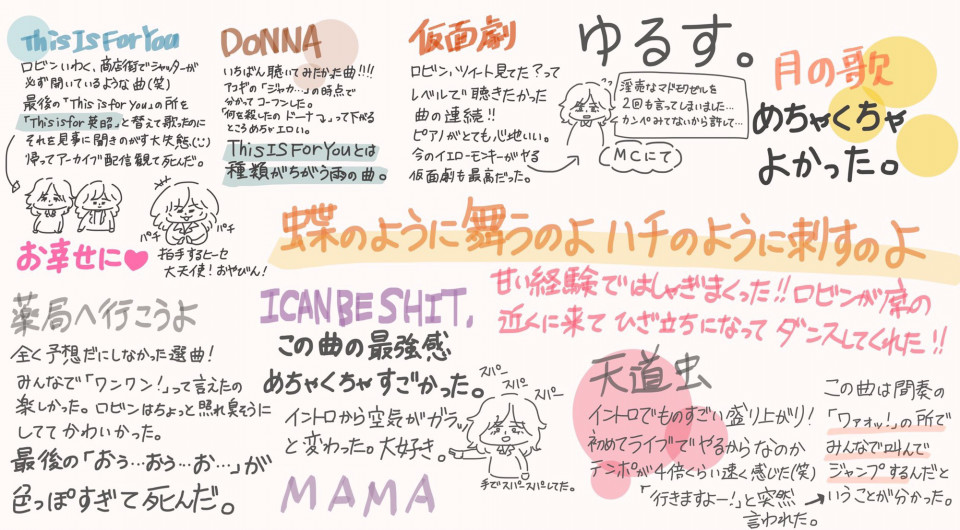 This Is For You
ロビンいわく、商店街でシャッターが
必ず開いているような曲(笑)
最後の「This is for You」の所を
「This is for 英昭」と替えて歌ったのに
それを見事に聞きのがす大失態(;;)
帰ってアーカイブ配信観て死んだ。
お幸せに♥
パチ
パチ
拍手するヒーセ
大天使!おやびん!
DONNA
いちばん聴いてみたかった曲!!!!
アコギの「ジャカ…」の時点で
分かってコーフンした。
「何を殺したの ドーナ〜」って下がる
ところめちゃエロい。
This IS For Youとは
種類がちがう雨の曲。
仮面劇
ロビン、ツイート見てた?って
レベルで聴きたかった
曲の連続!!
ピアノがとても心地いい。
今のイエローモンキーがヤる
仮面劇も最高だった。
ゆるす。
淫売なマドモワゼルを
2回も言ってしまいました…
カンペみてないから許して…
MCにて
月の歌
めちゃくちゃ
よかった。
蝶のように舞うのよ ハチのように刺すのよ
甘い経験ではしゃぎまくった!!ロビンが席の
近くに来て ひざ立ちになって ダンスしてくれた!!
薬局へ行こうよ
全く予想だにしなかった選曲!
みんなで「ワンワン!」って言えたの
楽しかった。ロビンはちょっと照れ臭そうに
しててかわいかった。
最後の「おぅ…おぅ…お…」が
色っぽすぎて死んだ。
I CAN BE SHIT,
この曲の最強感
めちゃくちゃすごかった。
イントロから空気がガラッ
と変わった。大好き。
スパー
スパー
スパー
手でスパースパーしてた。
MAMA
天道虫
イントロでものすごい盛り上がり!
初めてライブでやるからなのか
テンポが4倍くらい速く感じた(笑)
「行きますよー!」と突然
言われた。
この曲は間奏の
「ワァオッ!」の所で
みんなで叫んで
ジャンプするんだと
いうことが分かった。